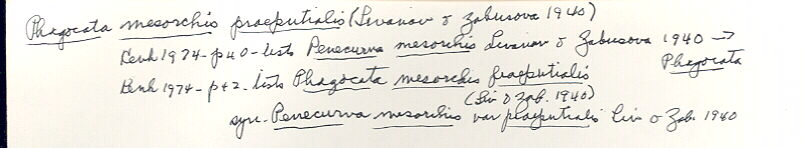 Phagocata mesorchis praeputialis (Livanov & Zabusova 1940)
Kenk 1974 - p40 - lists Penecurva mesorchis Livanov & Zabusova 1940 →
Phagocata
Kenk 1974 - p42. lists Phagocata mesorchis praeputialis
(Liv & Zab. 1940)
syn. Penecurva mesorchis var praeputialis Liv & Zab. 1940